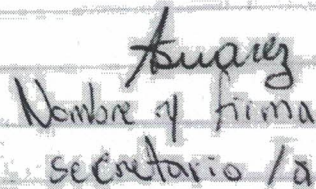 Asuarez
Nombre y firma
secretario/a